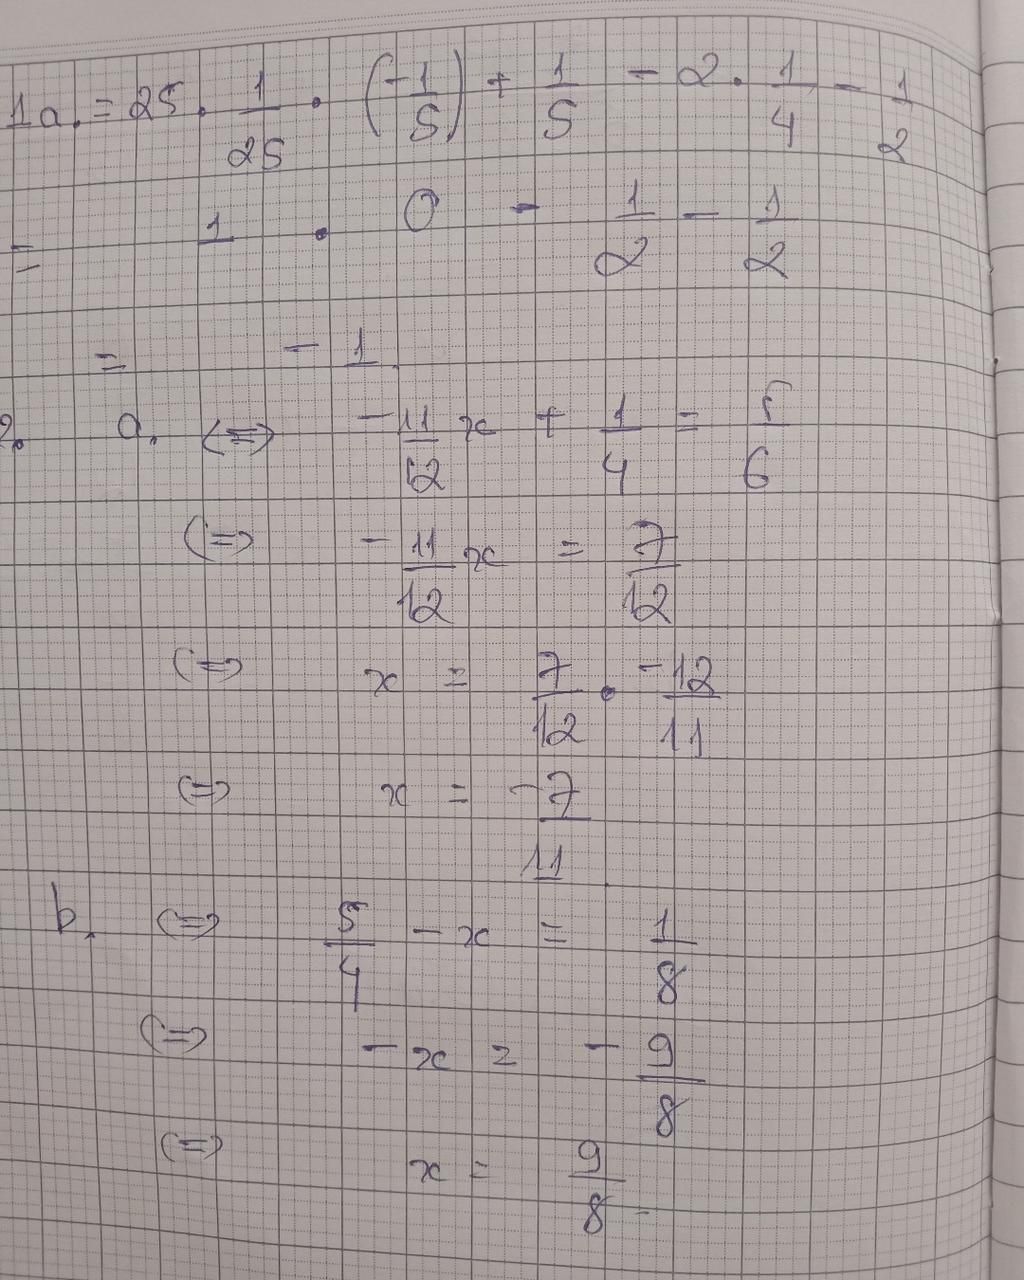 1a. = 25 . 1/25 . (-1/5) + 1/5 - 2 . 1/4 - 1/2
= 1 . 0 - 1/2 - 1/2
= - 1.
2. a. (=) - 11/12 x + 1/4 = 5/6
(=) - 11/12 x = 7/12
(=) x = 7/12 . -12/11
(=) x = -7/11.
b. (=) 5/4 - x = 1/8
(=) - x = - 9/8
(=) x = 9/8 -